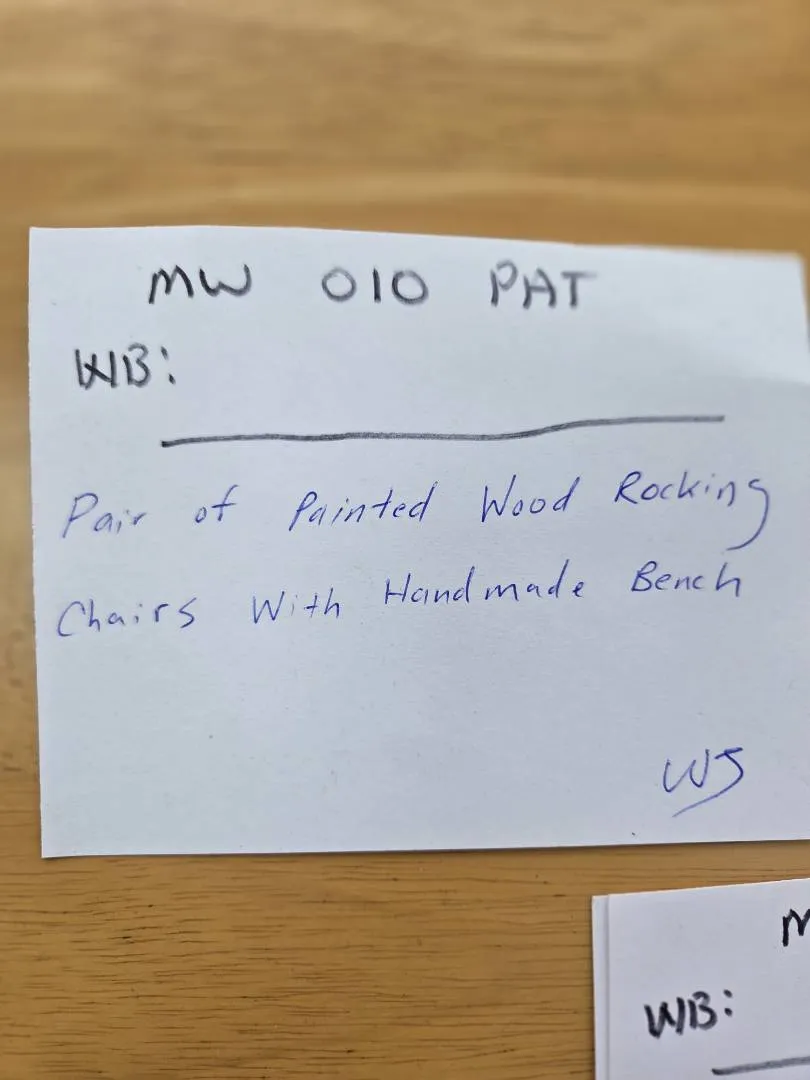 MW 010 PAT
WB:
Pair of Painted Wood Rocking
Chairs With Handmade Bench
WS
M
WB: